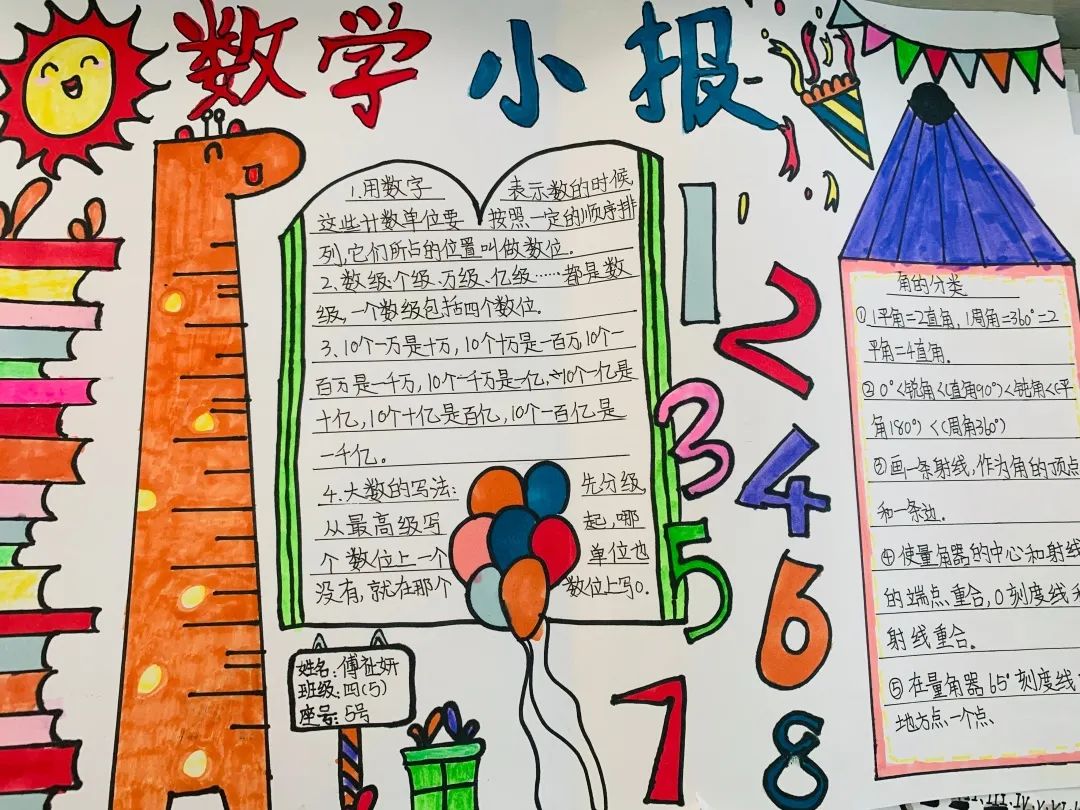 数学小报
1.用数字 表示数的时候
这些计数单位要 按照一定的顺序排
列,它们所占的位置叫做数位。
2、数级:个级、万级、亿级……都是数
级,一个数级包括四个数位。
3、10个一万是十万,10个十万是一百万,10个一
百万是一千万,10个一千万是一亿,10个一亿是
十亿,10个十亿是百亿,10个一百亿是
一千亿。
4.大数的写法: 先分级,
从最高级写 起,哪
个数位上一个 单位也
没有,就在那个 数位上写0.
姓名:傅祉妍
班级:四(5)
座号:5号
1
2
3
4
5
6
7
8
角的分类
①1平角=2直角,1周角=360°=2
平角=4直角.
②0°<锐角<(直角90°)<钝角<(平
角180°)<(周角360°)
③画一条射线,作为角的顶点
和一条边.
④使量角器的中心和射线
的端点重合,0刻度线和
射线重合。
⑤在量角器65°刻度线
地方点一个点、